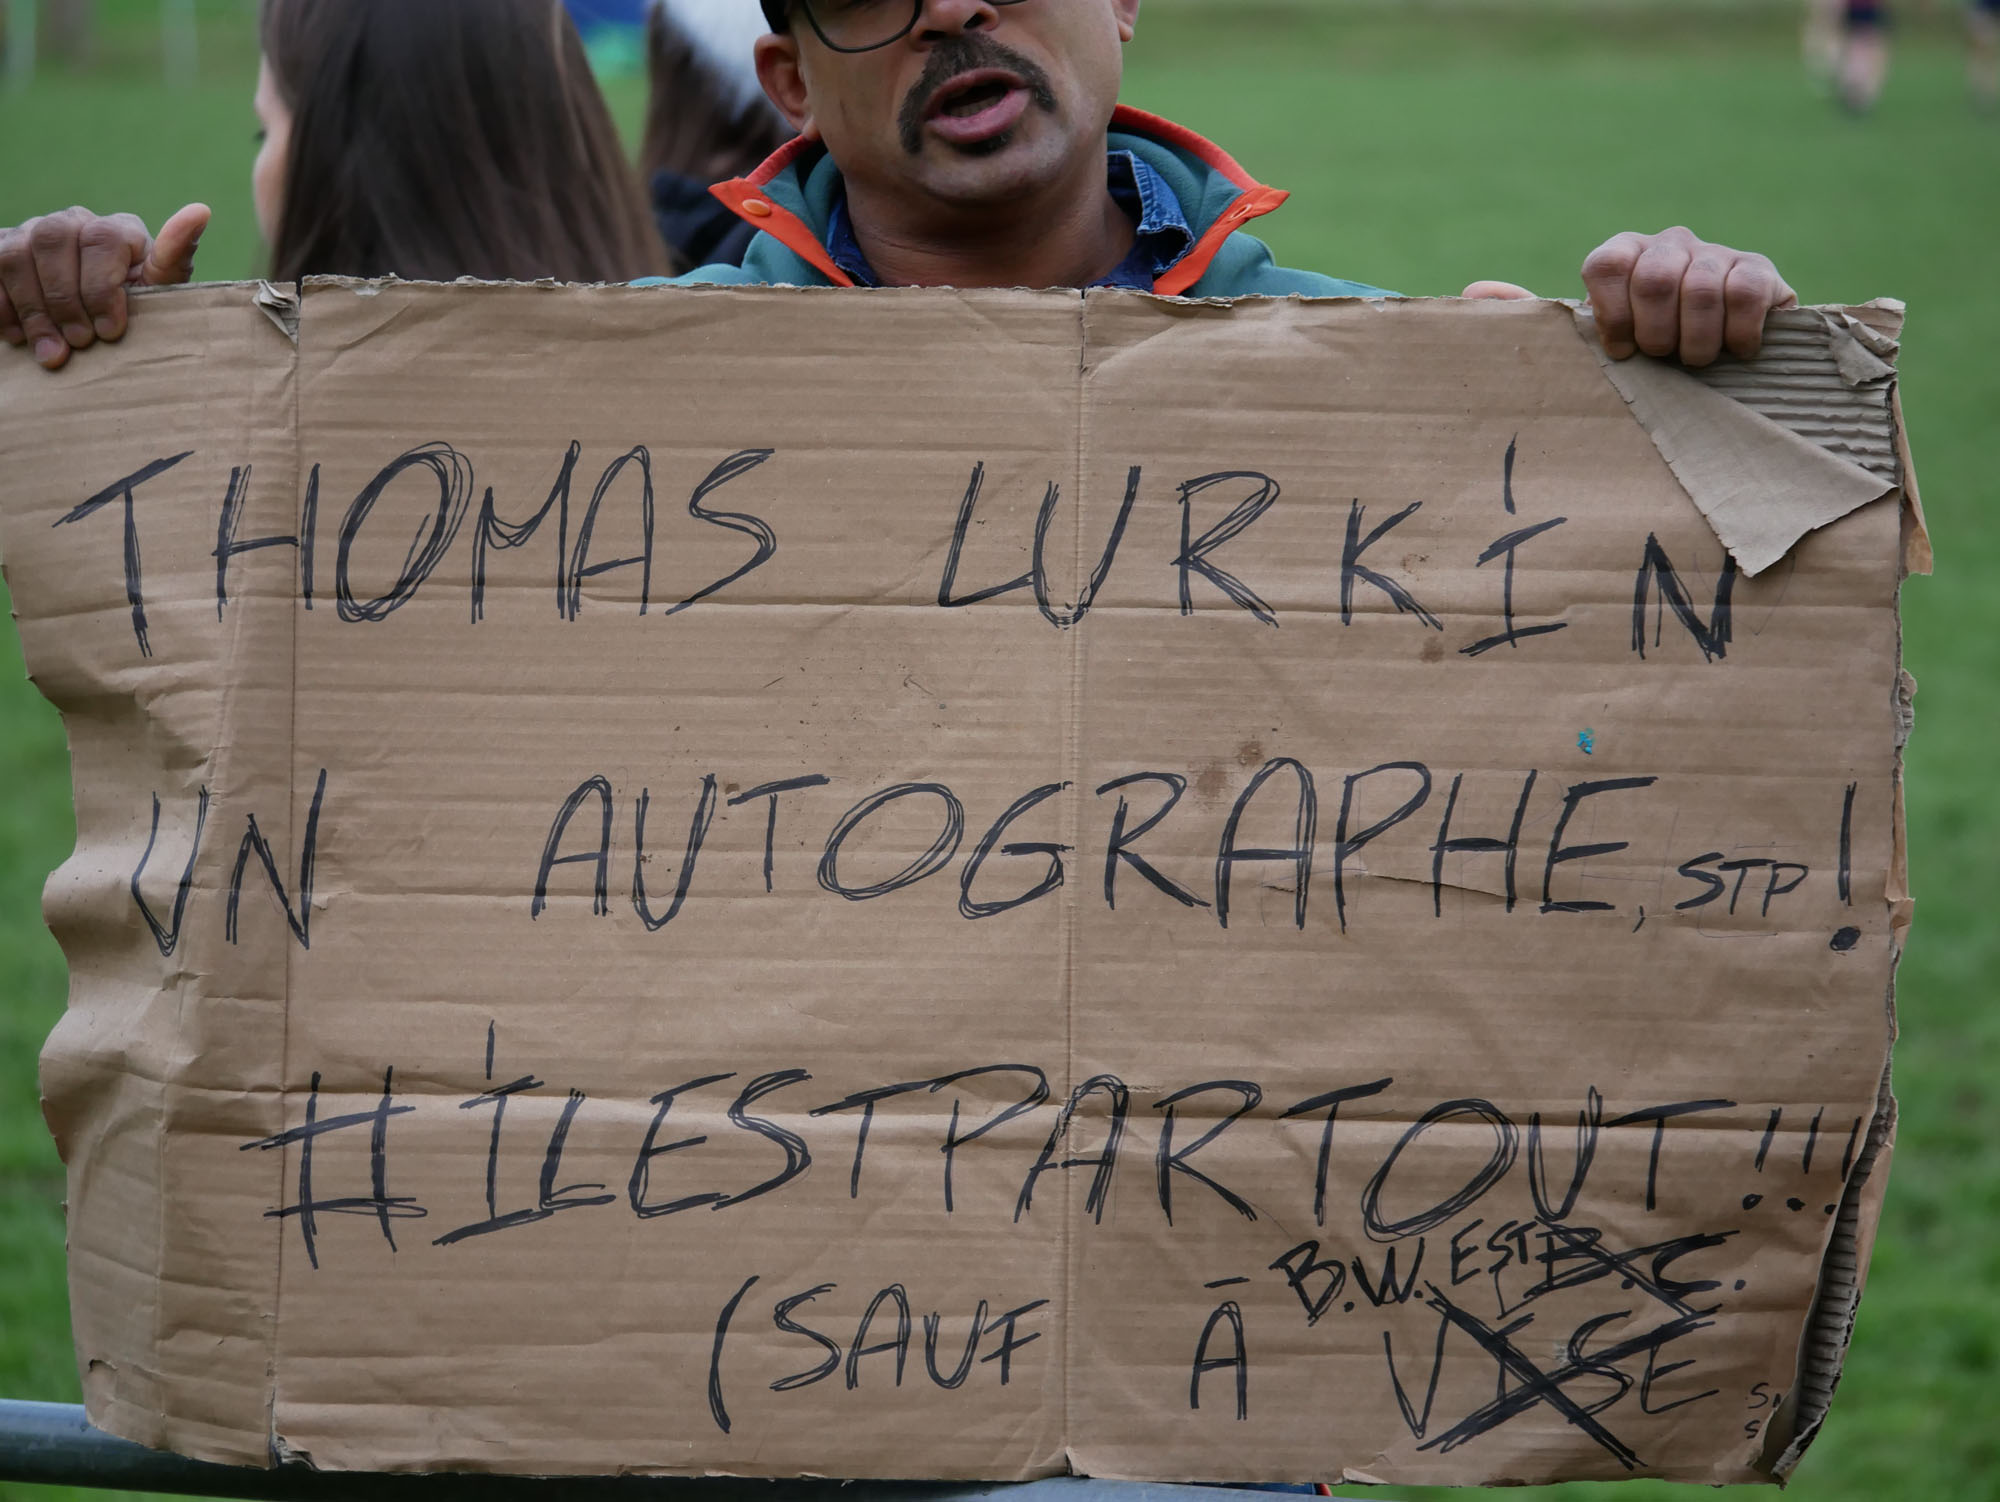 THOMAS LURKIN
UN AUTOGRAPHE, STP !
#ILESTPARTOUT !!!
B.W. EST B.C.
(SAUF À VISE